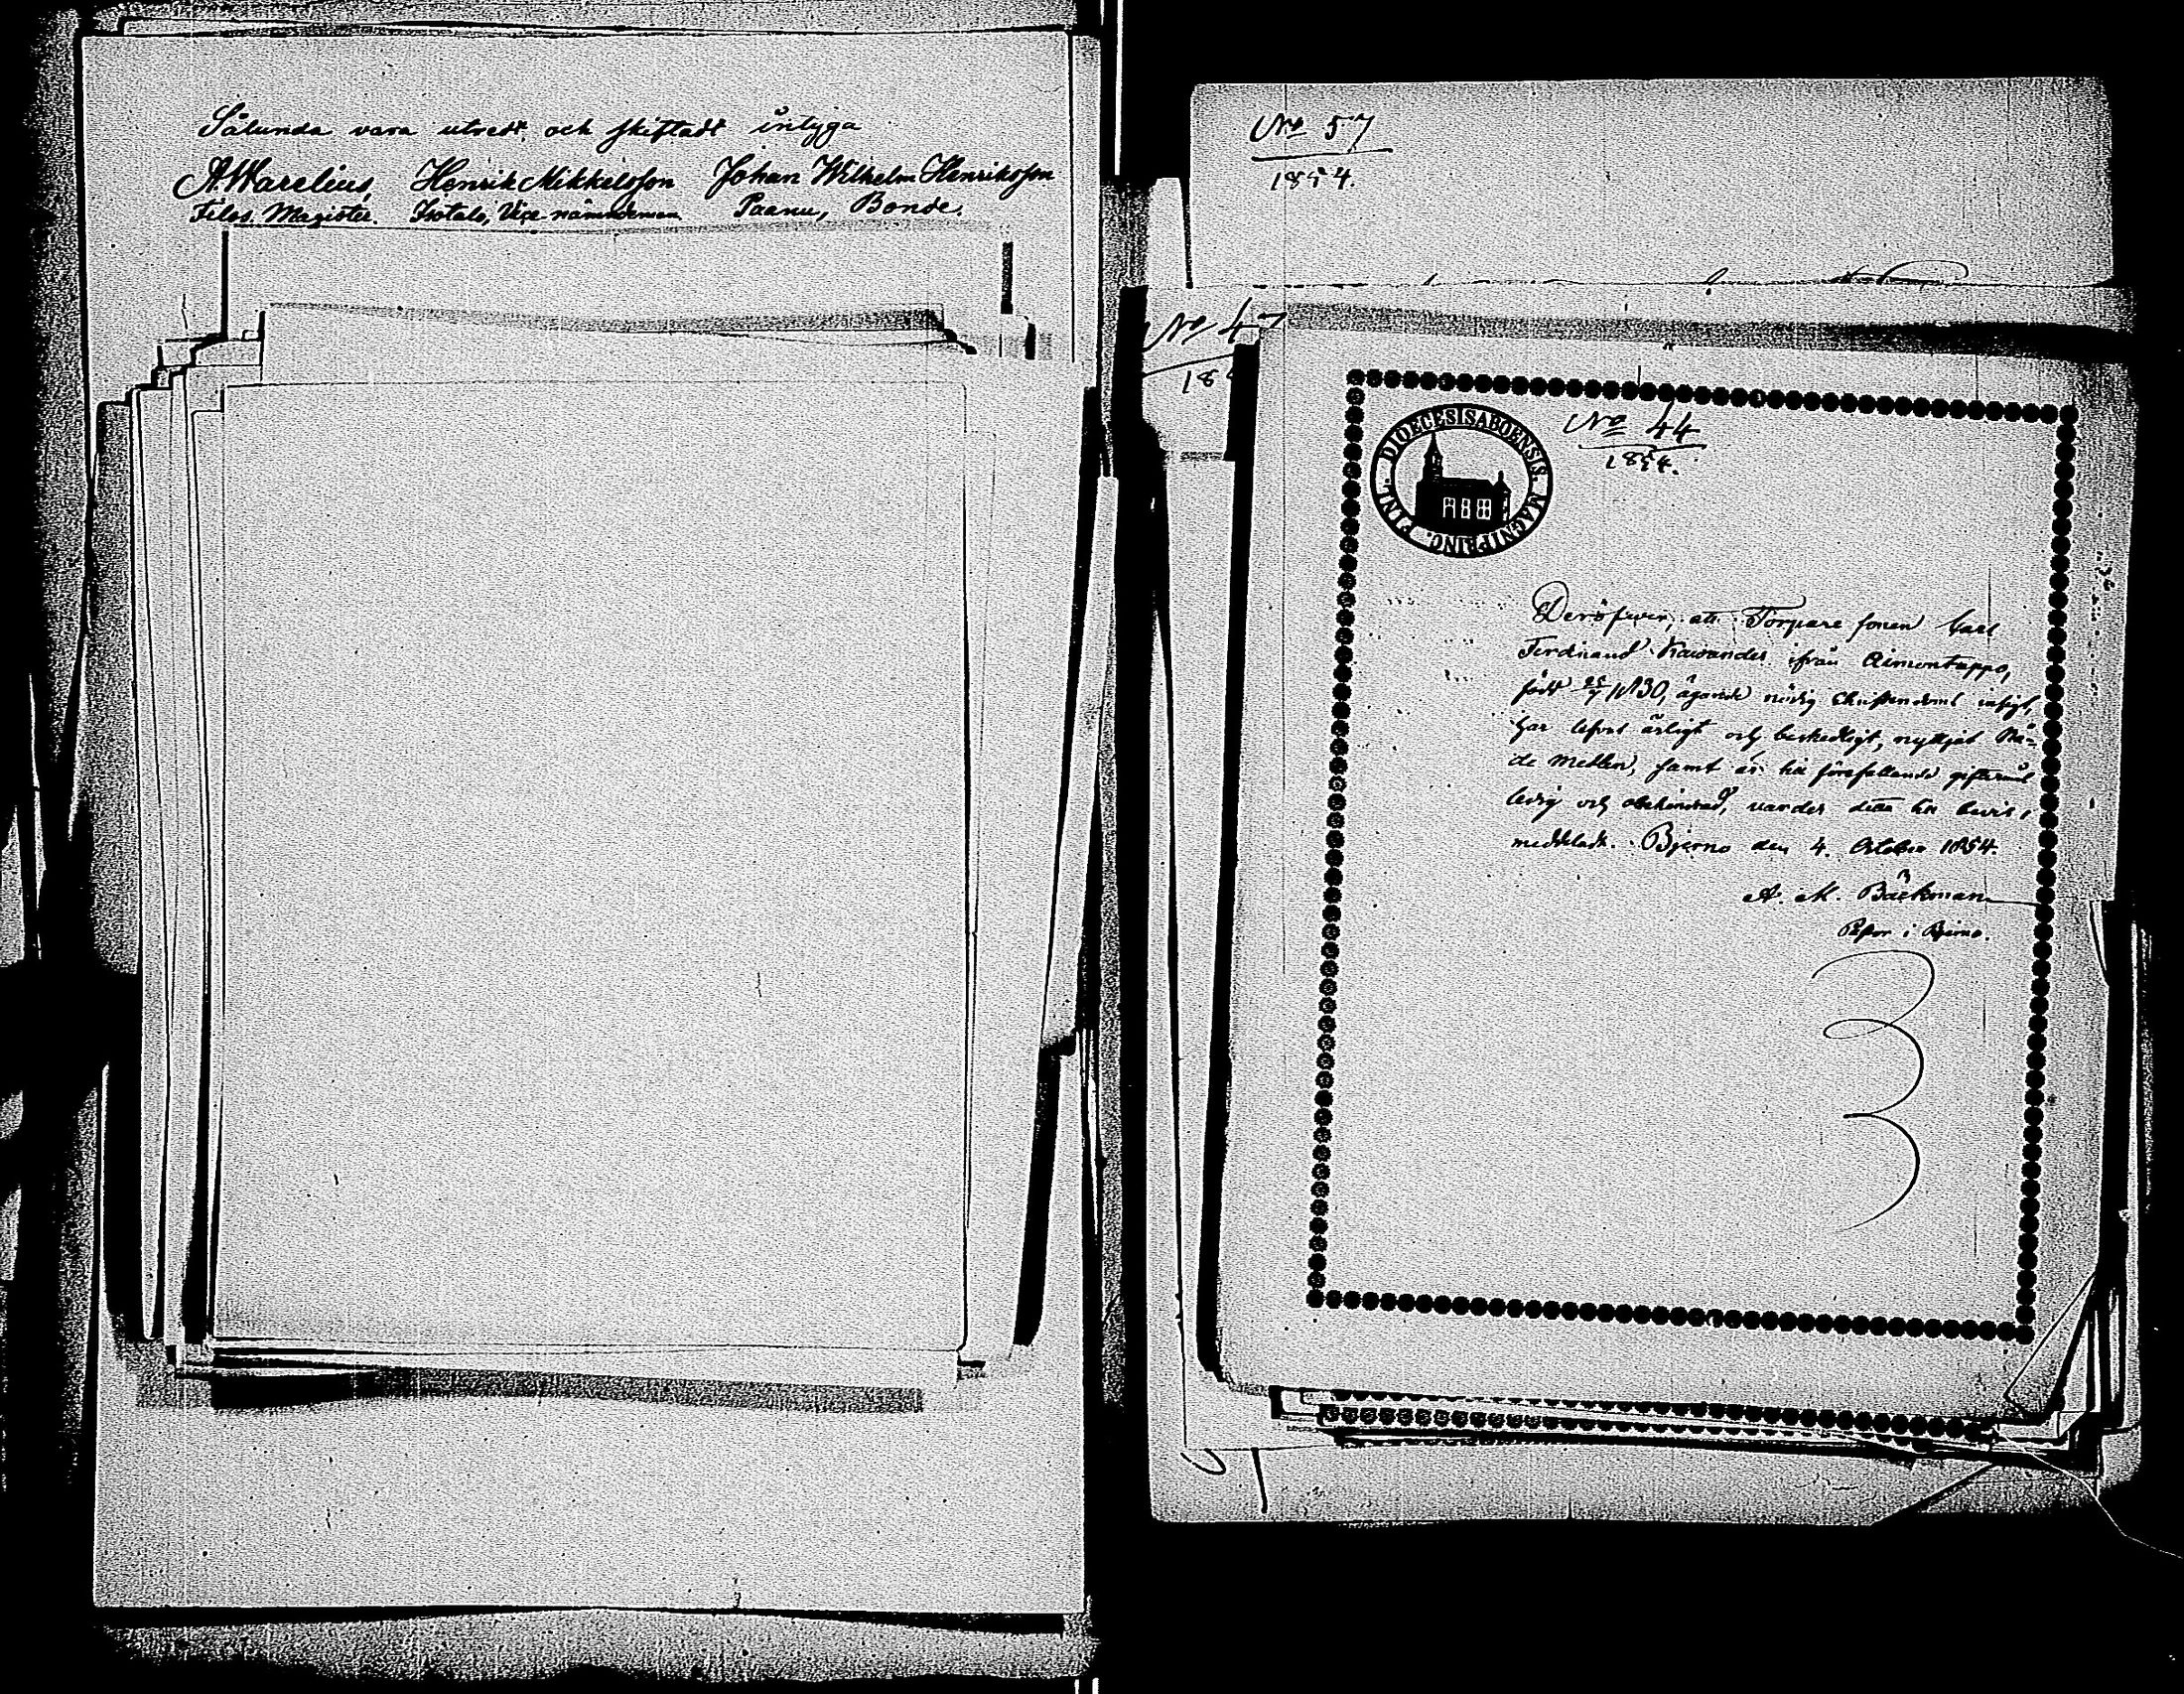 Sålunda vara utredt och skiftadt intyga
A. Warelius, Henrik Mikkelsson Johan Wilhelm Henriksson
Filos. Magister. Isotalo, Vice-nämndeman Paanu, Bonde.
No 57
1854.
No 47
18
DIOECESIS ABOENSIS. MAGNI PRINC. FINL.
No 44
1854.
Deröfver, att Torpare sonen Carl
Ferdinand ifrån Aimontappo,
född 25/7 1830, ägande nödig Christendoms insigt,
har lefvat ärligt och beskedligt, nyttjat Nå-
de medlen, samt är till förefallande giftermål
ledig och obehindrad, varder detta till bevis,
meddeladt. Bjerno den 4. October 1854.
A. M. Bäckman
Pastor i Bjerno.